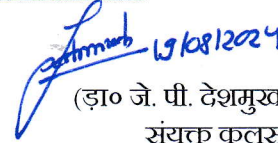 19/08/2024
(ड़ा० जे. पी. देशमुख
संयुक्त कुलस